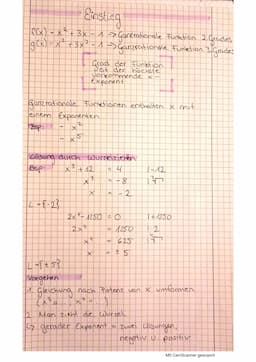 Einstieg
f(x) = x² + 3x - 1 → Ganzrationale Funktion 2. Grades
g(x) = x³ + 3x² - 1 → Ganzrationale Funktion 3. Grades
Grad der Funktion
ist der höchste
vorkommende x-
Exponent
Ganzrationale Funktionen enthalten x mit
einem Exponenten
Bsp: - x²
- x⁵
Lösung durch Wurzelziehen
Bsp x³ + 12 = 4 | -12
x³ = -8 | ³√
x = -2
L = {-2}
2x⁴ - 1250 = 0 | +1250
2x⁴ = 1250 | :2
x⁴ = 625 | ⁴√
x = ± 5
L = {± 5}
Vorgehen
1. Gleichung nach Potenz von x umformen
2. Man zieht die Wurzel
↳ gerader Exponent = zwei Lösungen,
negativ u. positiv
Mit CamScanner gescannt